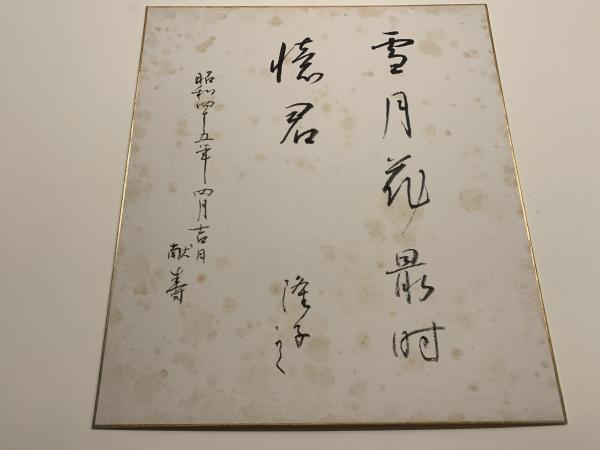 雪月花最时
憶君
隆子
昭和四十五年四月吉日
献寿